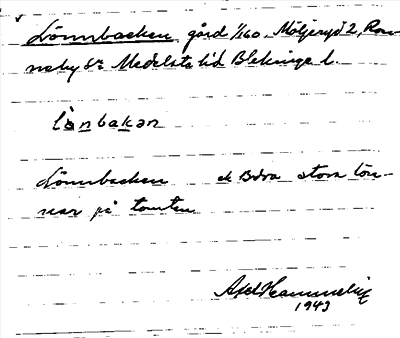 Lönnbacken gård 1/160. Möljeryd 2, Ron-
neby sn Medelsta hd Blekinge l.
lònbakan
Lönnbacken stora lön-
nar på tomten
Axel
1943